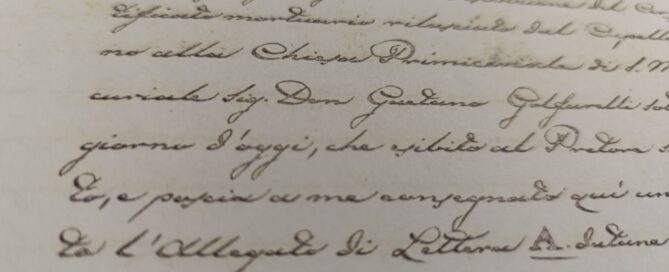 tificato mortuario rilasciato dal Capella
no alla Chiesa Primiceriale di S. M
curiale Sig. Don Gaetano
giorno d'oggi, che esibito al Pretore
to, e poscia a me consegnato qui un
to l'Allegato di Lettera A.